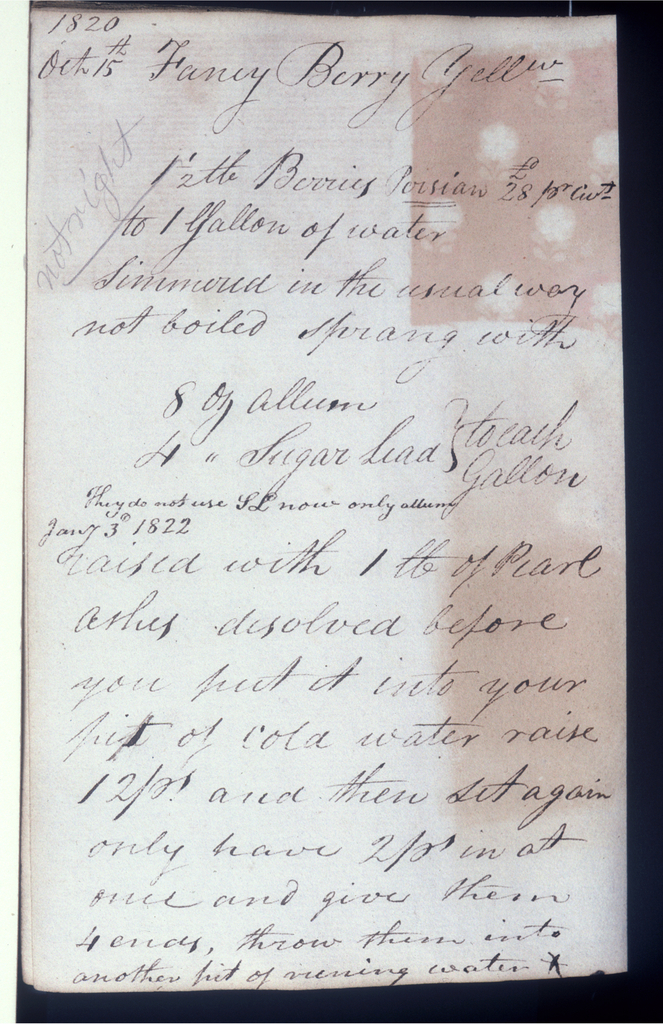 1820
Octr 15th Fancy Berry Yellow
not right
1 1/2 lb Berries Persian £28 pr Cwt
to 1 Gallon of water
Simmered in the usual way
not boiled sprang with
8 oz allum
4 " Sugar Lead } to each Gallon
They do not use SL now only allum
Jany 3d 1822
raised with 1 lb of Pearl
ashes disolved before
you put it into your
pit of cold water raise
12 ps. and then set again
only have 2 ps in at
once and give them
4 ends, throw them into
another pit of running water X